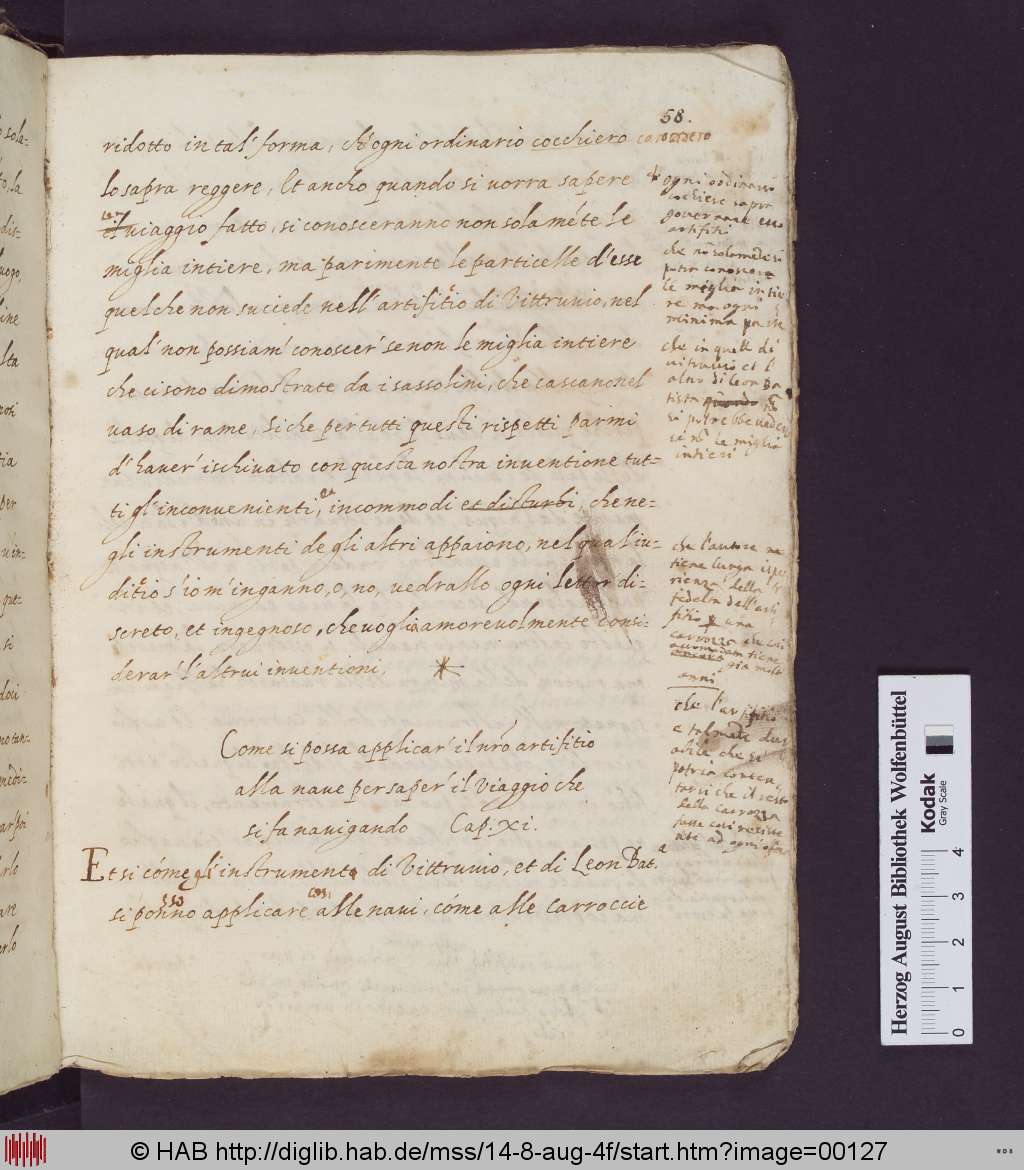 58.
ridotto in tal' forma, ch' ogni ordinario cocchiero
lo sapra reggere, Et ancho quando si uorra sapere
il uiaggio fatto, si conosceranno non solaméte le
miglia intiere, ma parimente le particelle d'esse
quel che non succiede nell' artifitio di Vittruuio, nel
qual' non possiam' conoscer' se non le miglia intiere
che ci sono dimostrate da i sassolini, che cascano nel
uaso di rame, Siche per tutti questi rispetti parmi
d'hauer' ischiuato con questa nostra inuentione tut-
ti gl' inconuenienti, et incommodi et disturbi, che ne-
gli instrumenti degli altri appaiono, nel qual' iu-
ditio s'io m'inganno, o, no, uedrallo ogni lettor di-
screto, et ingegnoso, che uoglia amoreuolmente consi-
derar' l'altrui inuentioni,
ogni ordinario
cochiere sapra
gouernare esso
artifitio
che nō solamēte si
potra conoscere
le miglia intie
re ma ogni
minima parte
che in quell di
uitruuio et l
altro di leon Ba
tista
si potrebbe uedere
se nō le miglia
intieri
che l'autore ne
tiene lunga espe
rienza della
fedelta dell'arti
fitio una
carrozza che
tiene
gia molti
anni
che l'artifitio
e talmēte dur
abile che si
potria conten
tarsi che il resto
della Carrozza
fosse
ad ogni
Come si possa applicar' il nrō artifitio
alla naue per saper' il Viaggio che
si fa nauigando Cap. xi.
Et si cóme gl' instrumenti di Vittruuio, et di Leon Bat.a
si ponno applicare cosi alle naui, cóme alle carroccie
Herzog August Bibliothek Wolfenbüttel
Kodak
Gray Scale
0 1 2 3 4
© HAB http://diglib.hab.de/mss/14-8-aug-4f/start.htm?image=00127